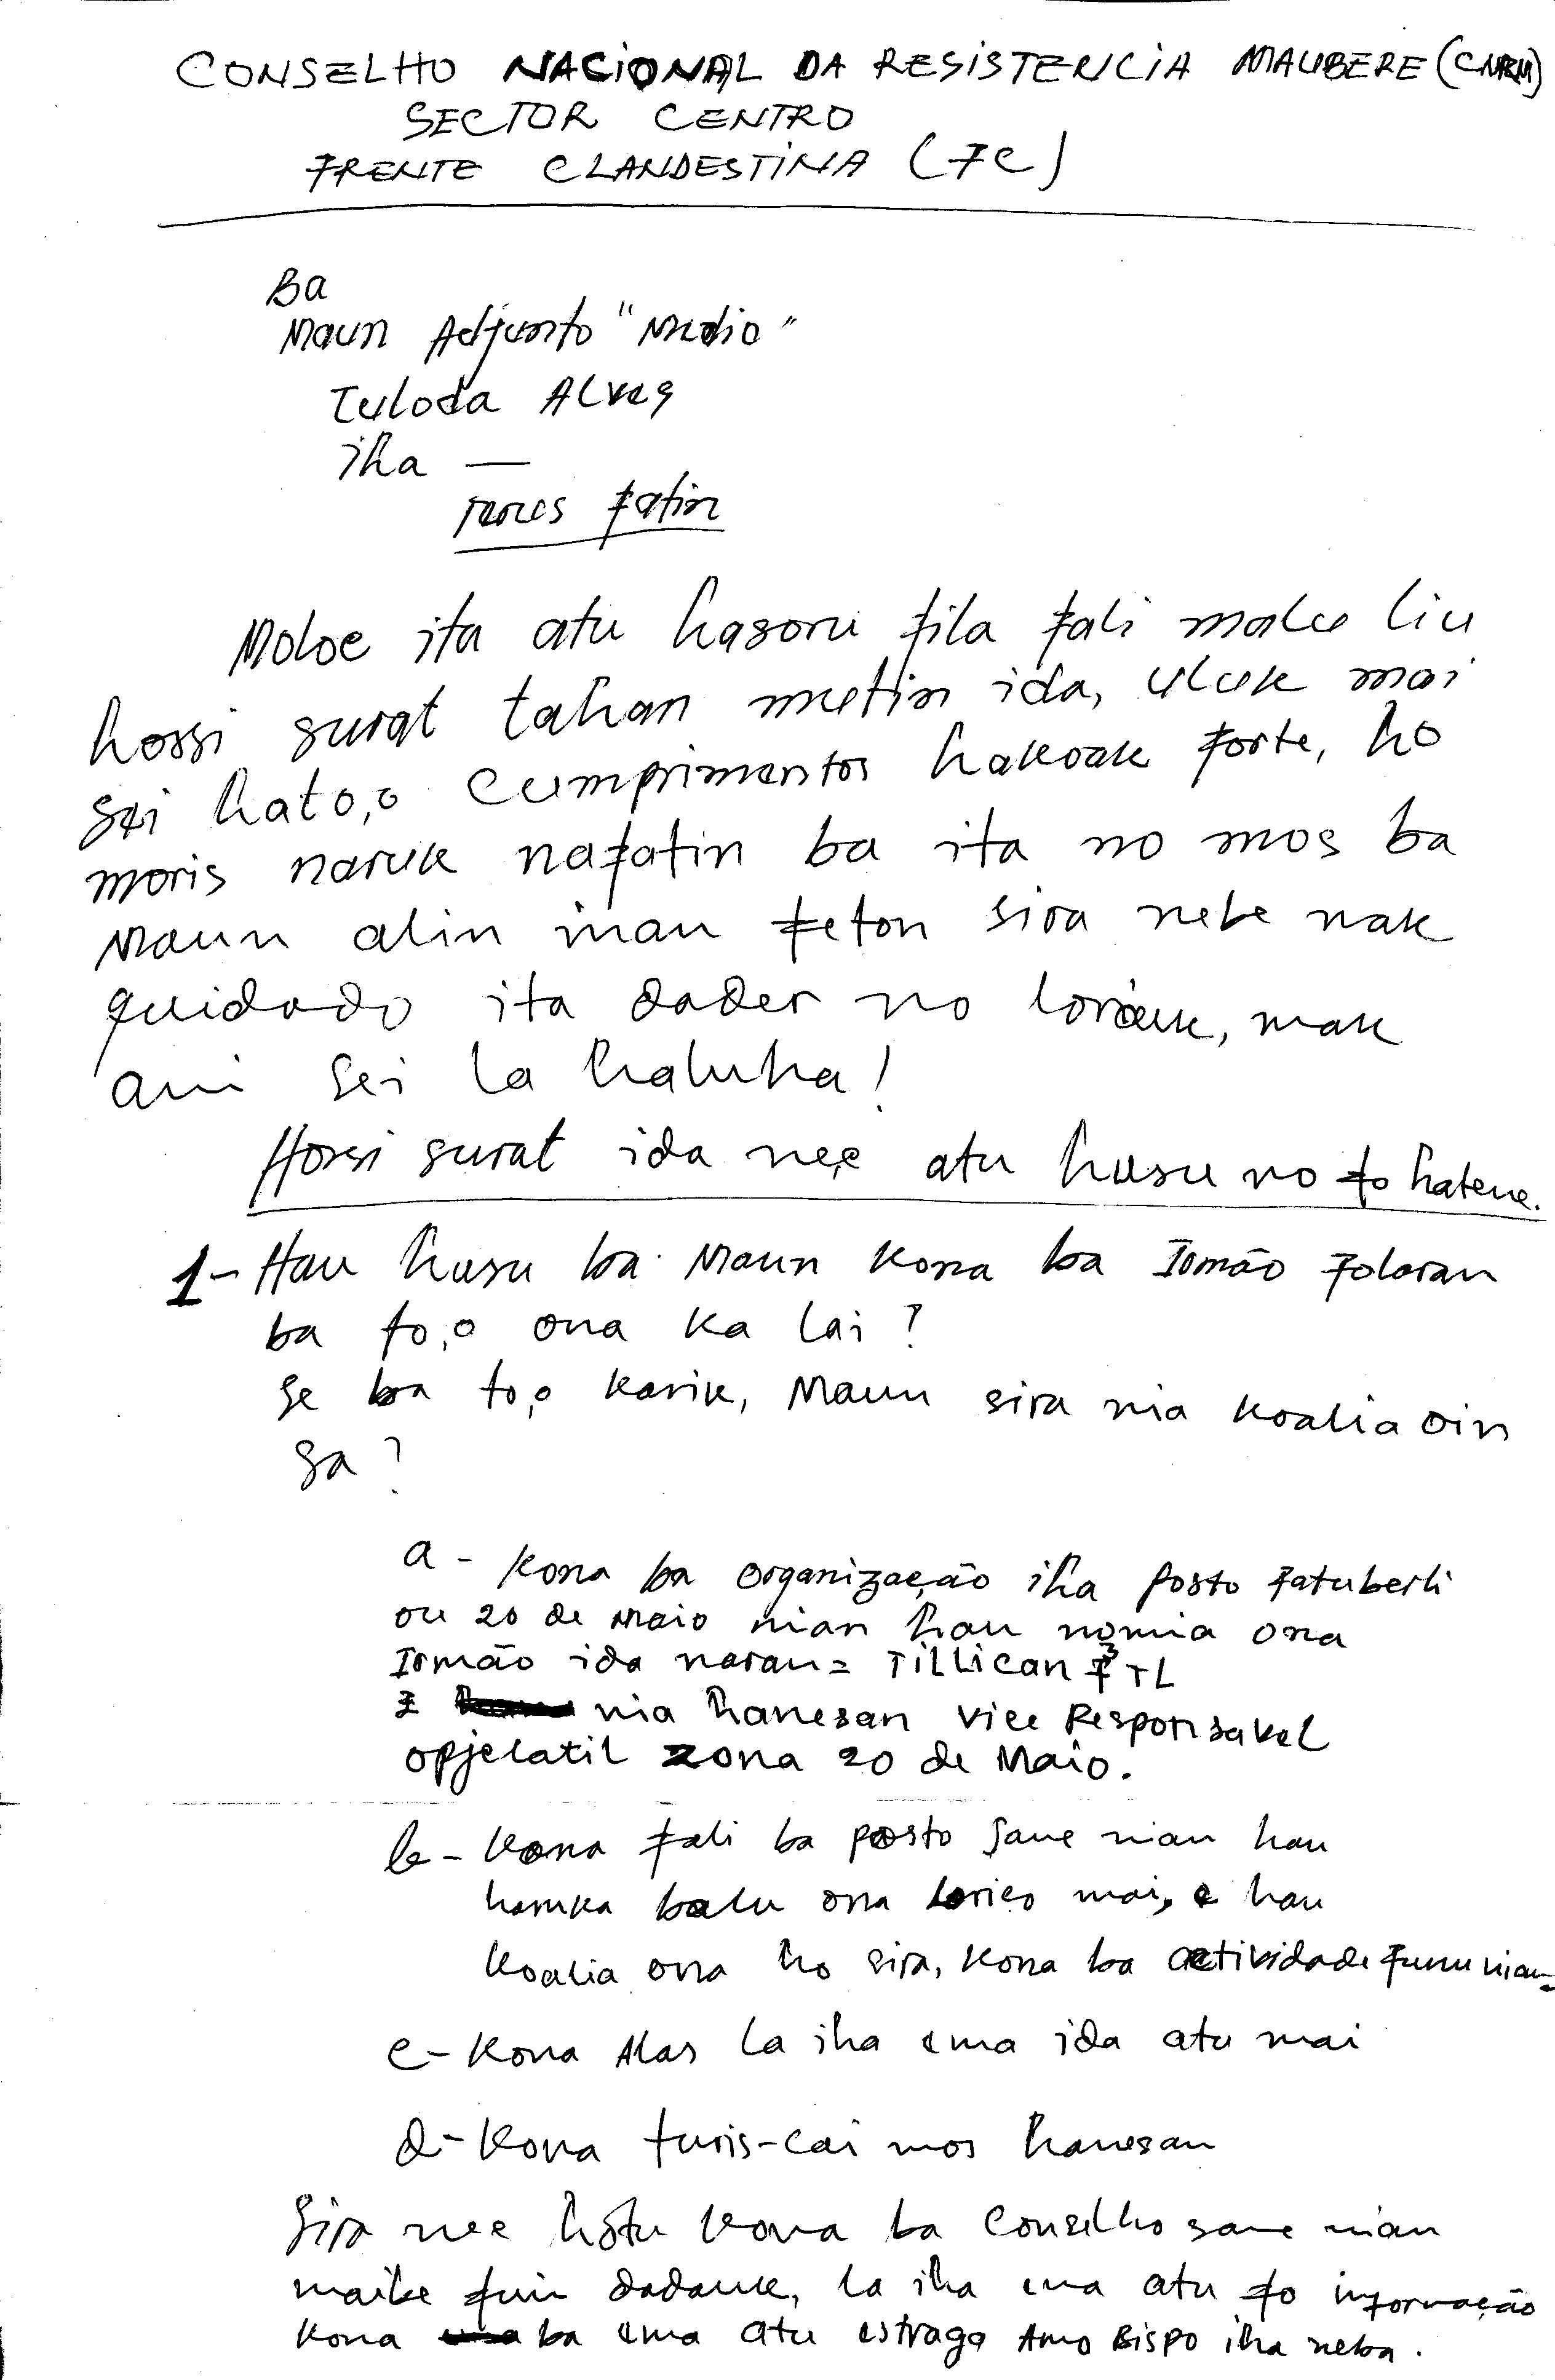 CONSELHO NACIONAL DA RESISTENCIA MAUBERE (CNRM)
SECTOR CENTRO
FRENTE CLANDESTINA (FC)
Ba
Maun Adjunto "Médio"
Tuloda Alves
iha —
fatin
Moloc ita atu hasoru fila fali malu liu
hossi surat tahan metin ida, uluk mai
sei hato,o cumprimentos hakoak forte, ho
moris naruk nafatin ba ita no mos ba
Maun alin inan feton sira nebe nak
quidado ita dader no loraik, mak
ami sei la haluha!
Hossi surat ida nee atu husu no fo hatene.
1- Hau husu ba Maun kona ba Irmão Folaran
ba to,o ona ka lai?
se ba to,o karik, Maun sira nia koalia oin
sa?
a- kona ba organização iha posto Fatuberli
ou 20 de Maio nian hau nomia ona
Irmão ida naran= TILLICAN F3TL
nia hanesan vice Responsavel
opjelatil zona 20 de Maio.
b- Kona fali ba posto Same nian hau
haruka balu ona Lorico mai, e hau
koalia ona ho sira, kona ba actividade funu nian.
c- Kona Alas la iha ema ida atu mai
d- Kona turis-cai mos hanesan
Sira nee hotu kona ba Conselho same nian
maibe fuin dadauk, la iha ema atu fo informação
kona ba ema atu estraga Amo Bispo iha neba.